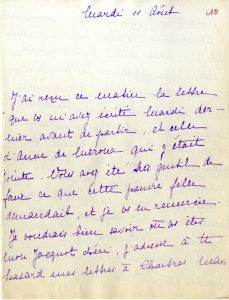 Mardi 11 Août 10
J'ai reçu ce matin la lettre
que vs m'avez écrite Mardi der-
nier avant de partir, et celle
d'Anne de qui y était
jointe. Vous avez été très gentil de
faire ce que cette pauvre fille
demandait, et je vs en remercie.
Je voudrais bien savoir où vs êtes
mon Jacquot chéri, j'adresse à tt
hasard mes lettres à Chartres mais